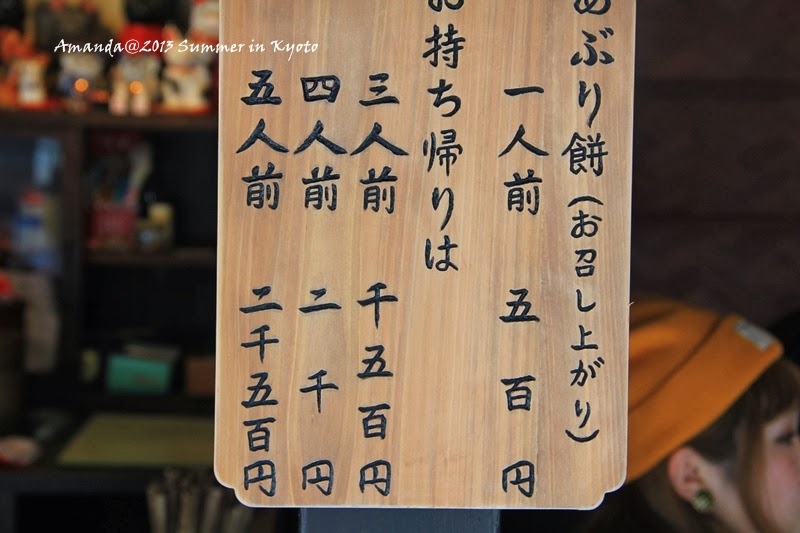 Amanda@2013 Summer in Kyoto
あぶり餅(お召し上がり)
一人前 五百円
お持ち帰りは
三人前 千五百円
四人前 二千円
五人前 二千五百円